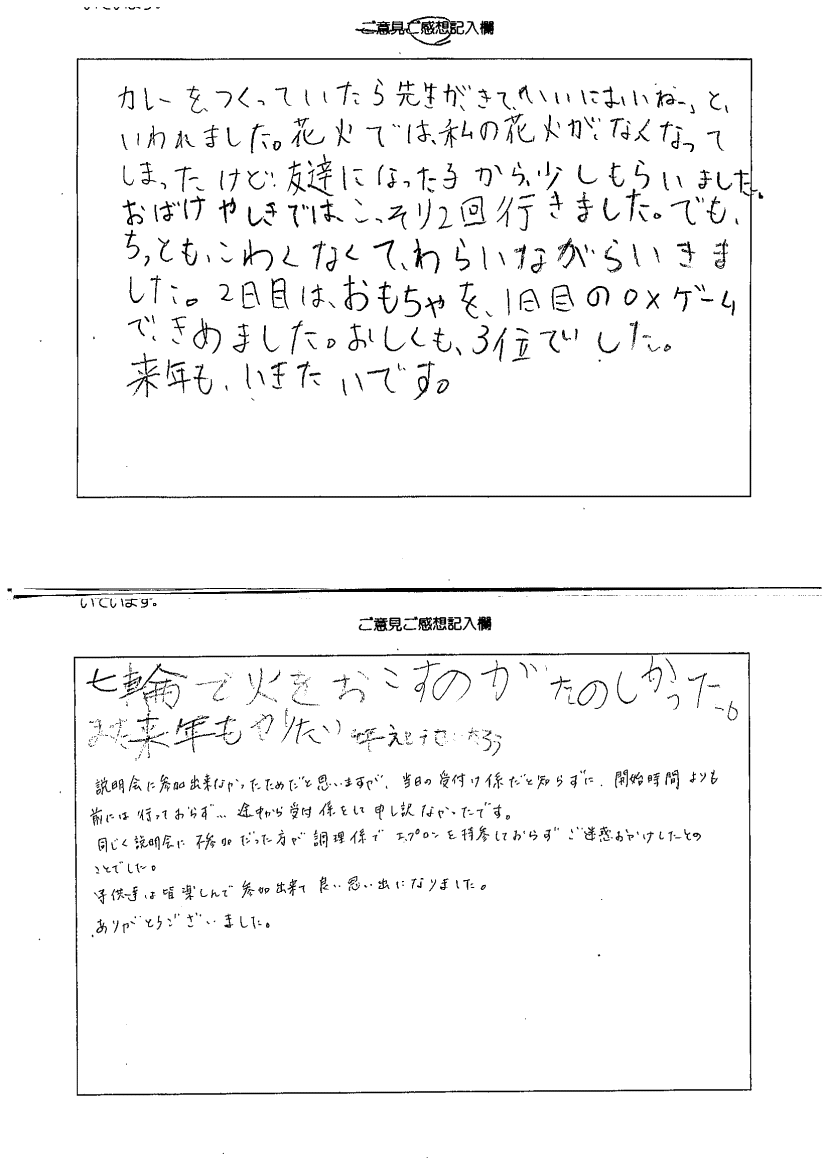 ご意見ご感想記入欄
カレーをつくっていたら先生がきて、「いいにおいねー」と、
いわれました。花火では、私の花火がなくなって
しまったけど、友達になった子から、少しもらいました。
おばけやしきでは、こっそり2回行きました。でも、
ちっとも、こわくなくて、わらいながらいきま
した。2日目は、おもちゃを、1日目の〇×ゲーム
で、きめました。おしくも、3位でした。
来年も、いきたいです。
いています。
ご意見ご感想記入欄
七輪で火をおこすのがたのしかった。
また来年もやりたい
説明会に参加出来なかったためだと思いますが、当日の受付け係だと知らずに、開始時間よりも
前には行っておらず… 途中から受付係をして申し訳なかったです。
同じく説明会に不参加だった方が調理係でエプロンを持参しておらずご迷惑おかけしたとの
ことでした。
子供達は皆楽しんで参加出来て良い思い出になりました。
ありがとうございました。